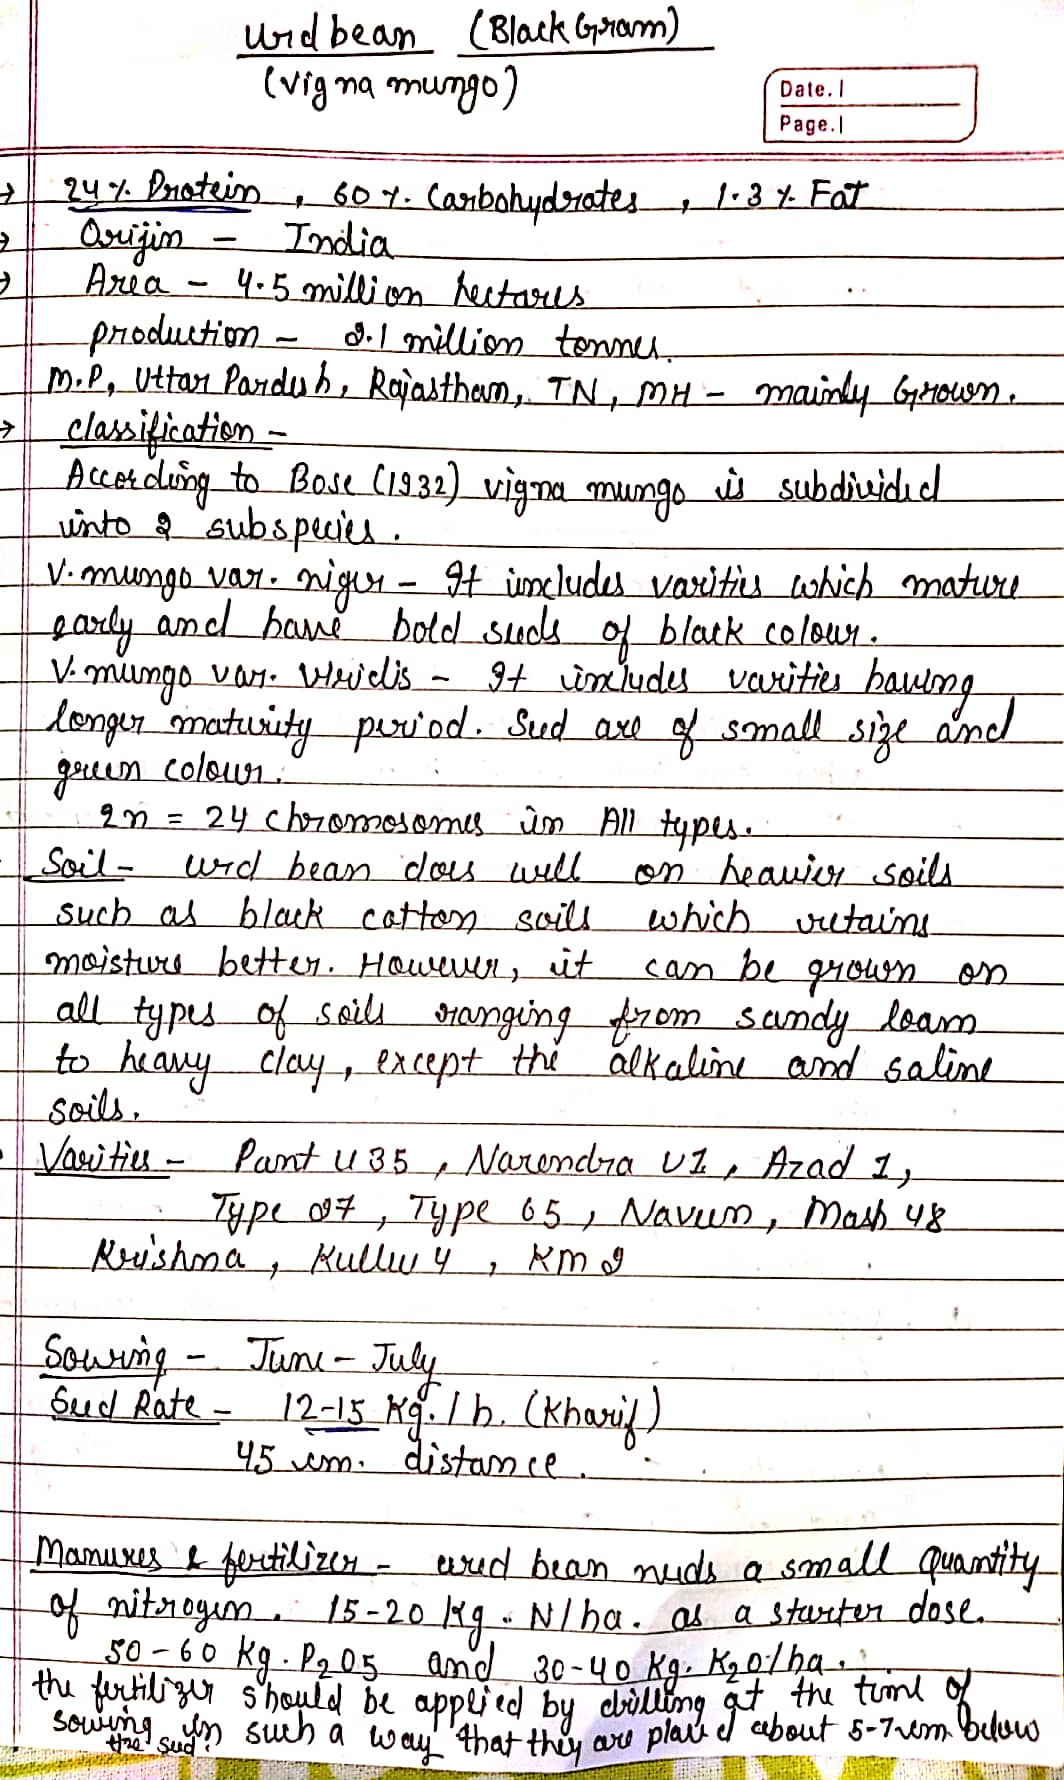 Urd bean (Black Gram)
(Vigna mungo)
Date.
Page.
→ 24 % Protein, 60 %. Carbohydrates, 1.3 % Fat
→ Orijin - India
→ Area - 4.5 million hectares
production - 2.1 million tonnes.
M.P, Uttar Pardesh, Rajasthan, TN, MH - mainly Grown.
→ classification -
According to Bose (1932) vigna mungo is subdivided
into 2 subspecies.
V. mungo var. niger - It includes varities which mature
early and have bold seeds of black colour.
V. mungo var. Viridis - It includes varities having
longer maturity period. Seed are of small size and
green colour.
2n = 24 chromosomes in All types.
Soil - urd bean does well on heavier soils
such as black cotton soils which retains
moisture better. However, it can be grown on
all types of soils ranging from sandy loam
to heavy clay, except the alkaline and saline
soils.
Varities - Pant U 35, Narendra U1, Azad 1,
Type 27, Type 65, Naveen, Mash 48
Krishna, Kullu 4, KM 2
Sowing - June - July
Seed Rate - 12-15 Kg./h. (Kharif)
45 cm. distance.
Manures & fertilizer - ured bean needs a small quantity
of nitrogen. 15-20 Kg. N/ha. as a starter dose.
50-60 Kg. P2O5 and 30-40 Kg. K2O/ha.
the fertilizer should be applied by drilling at the time of
sowing in such a way that they are placed about 5-7 cm below
the seed.